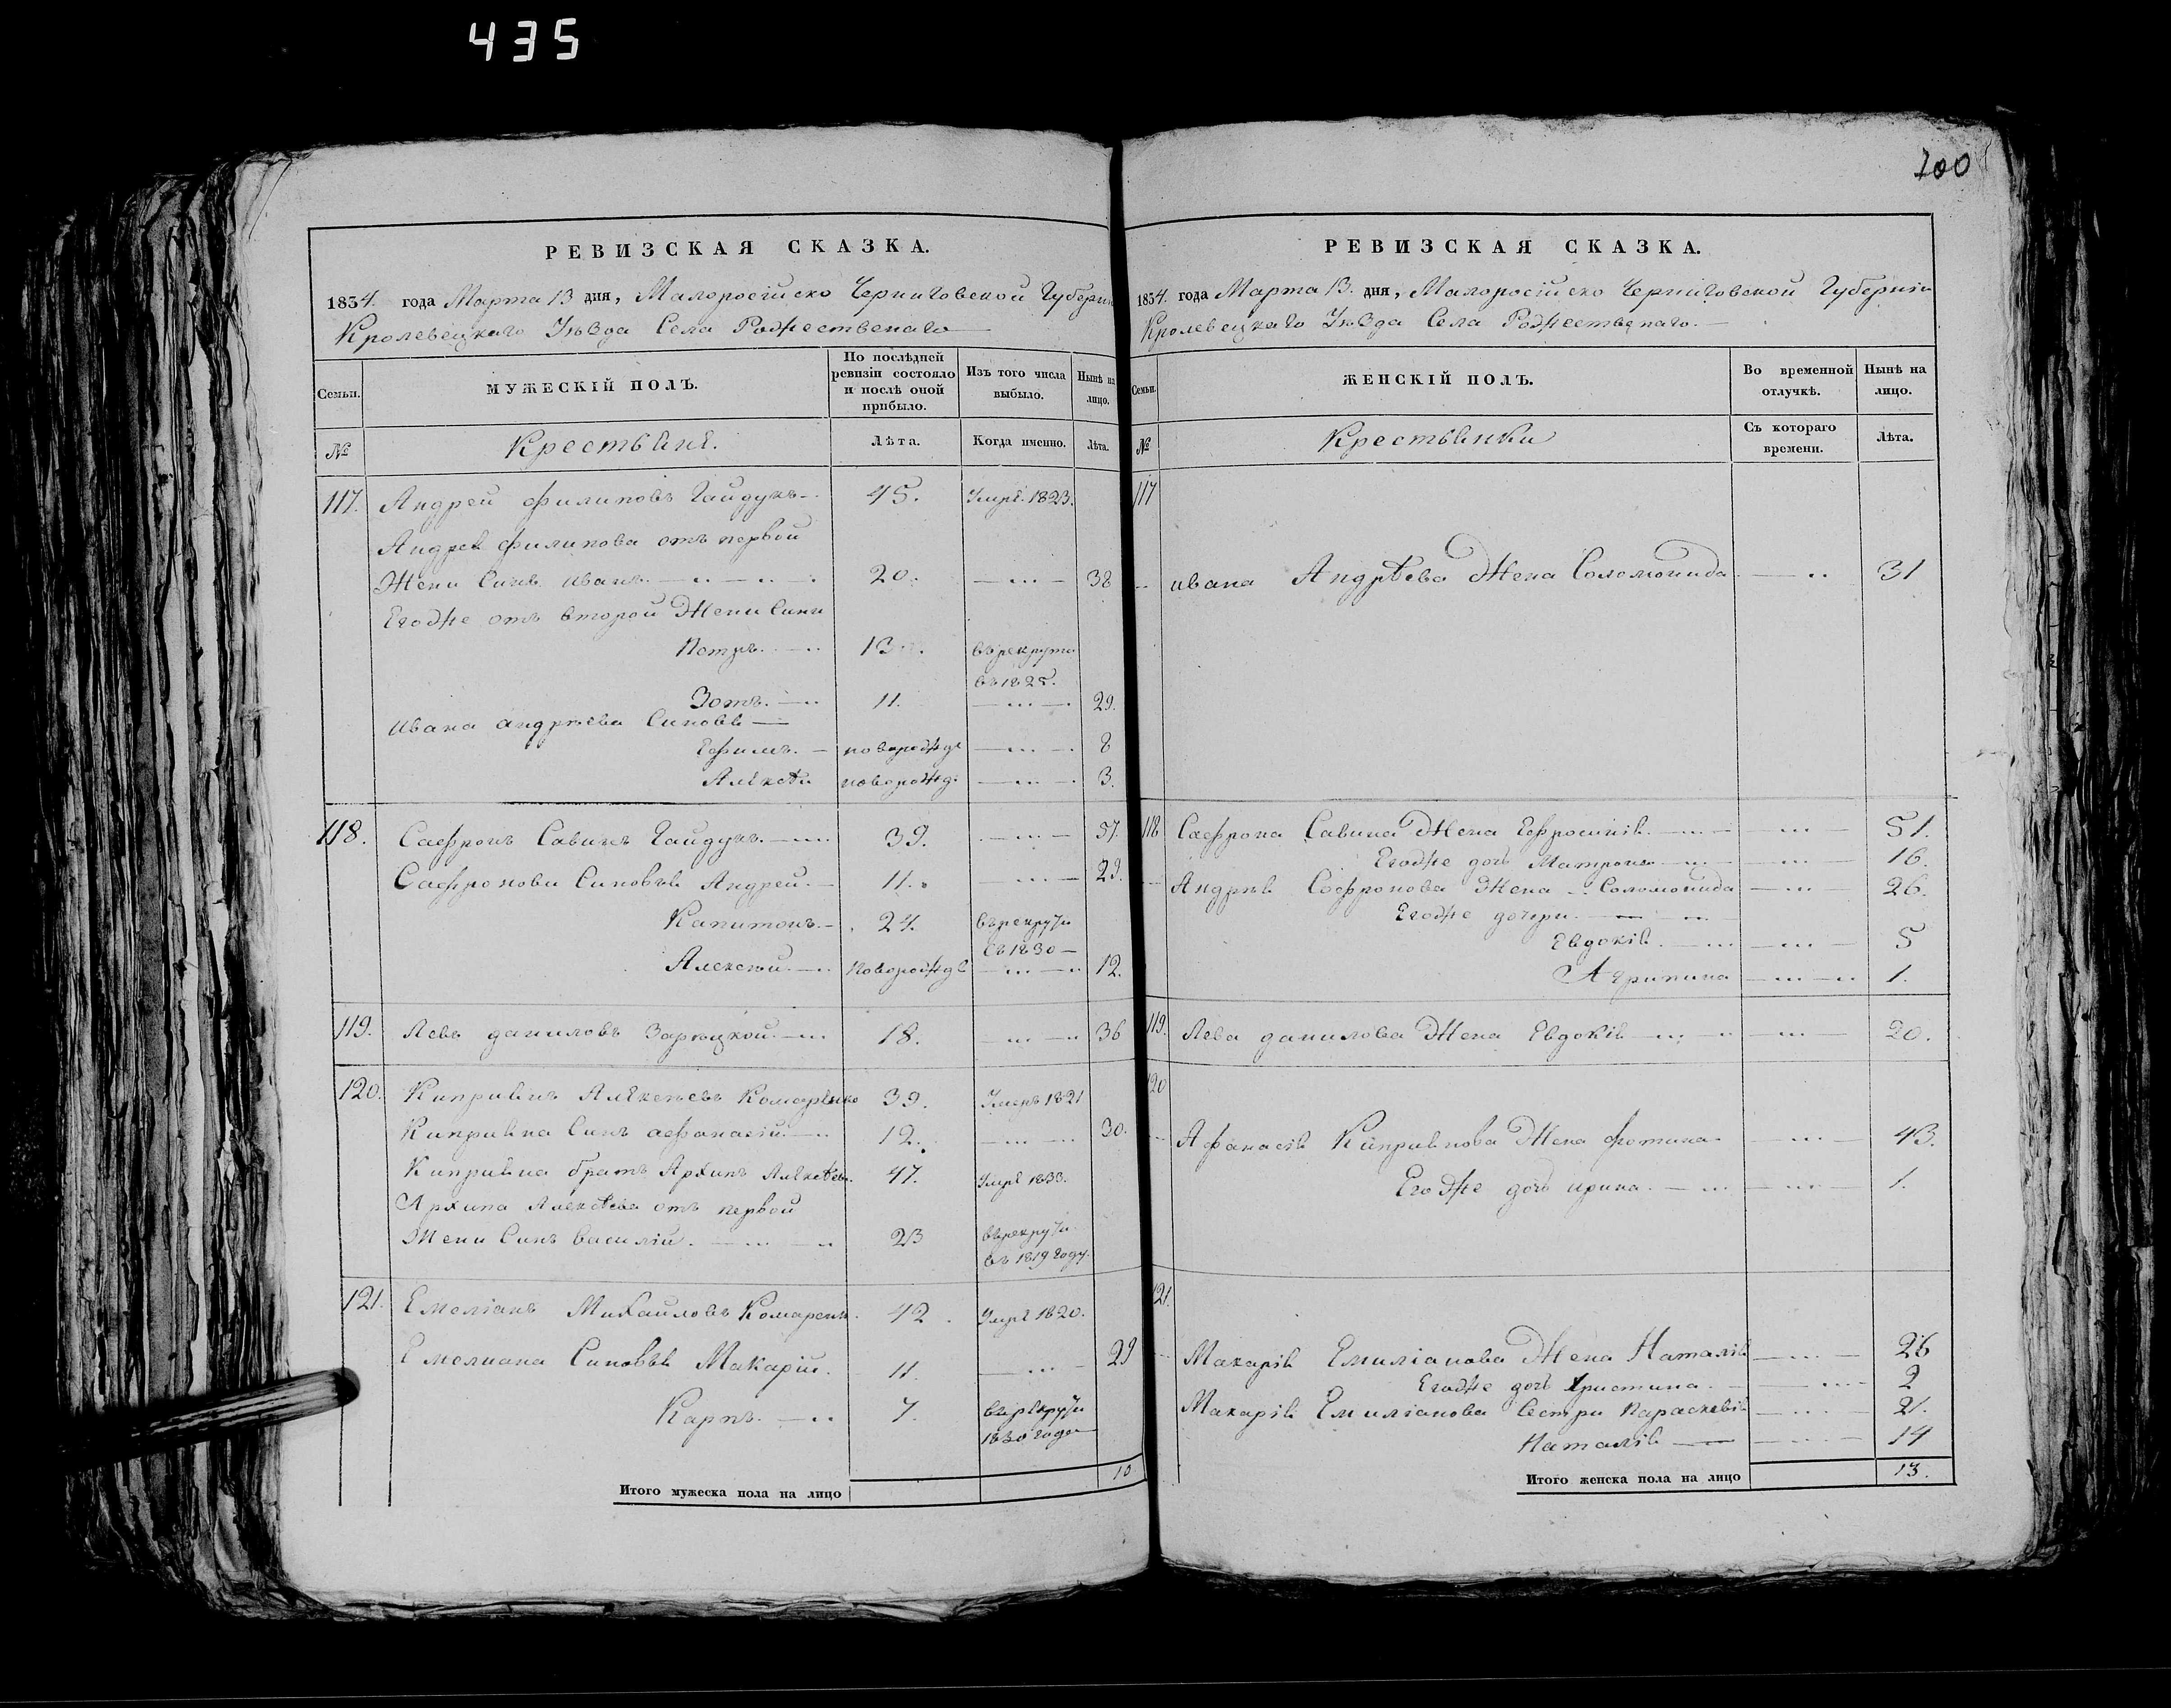 435
200
РЕВИЗСКАЯ СКАЗКА.
1834. года Марта 13 дня, Малоросійско Черниговской Губерніи
Кролевецкаго Уѣзда Села Рождественаго
Семьи.
МУЖЕСКІЙ ПОЛЪ.
По послѣдней ревизіи состояло и послѣ оной прибыло.
Изъ того числа выбыло.
Нынѣ на лицо.
№
Крестьяне.
Лѣта.
Когда именно.
Лѣта.
117. Андрей Филиповъ Гайдукъ 45. Умре. 1823.
Андрея Филипова отъ первой
Жени Синъ иванъ 20. 38
Егожъе отъ второй Жени Сини
Петръ. 13. въ рекрути
въ 1825.
Зотъ. 11. 29.
ивана андрѣева Синовя
Ефимъ. новорожде 8
Алексѣи новорожд. 3.
118. Сафронъ Савинъ Гайдукъ. 39. 57.
Сафронови Синовья Андрей. 11. 29.
Капитонъ. 24. въ рекрути
въ 1830
Алексѣй. новорожде 12.
119. Левъ даниловъ Зарѣцкой. 18. 36
120. Киприянъ Алексѣевъ 39. Умеръ 1821
Киприяна Синъ афанасій. 12. 30.
Киприяна братъ Архипъ Алексѣевъ. 47. Умре 1833.
Архипа Алексѣева отъ первой
Жени Синъ василій. 23 въ рекрути
въ 1819 году.
121. Емеліанъ Михайловъ 42. Умре 1820.
Емелиана Синовья Макарій. 11. 29
Карпъ. 7. въ рекрути
1830 года
Итого мужеска пола на лицо 10
РЕВИЗСКАЯ СКАЗКА.
1834. года Марта 13. дня, Малоросійско Черниговской Губерніи
Кролевецкаго Уѣзда Села Рождественаго.
Семьи.
ЖЕНСКІЙ ПОЛЪ.
Во временной отлучкѣ.
Нынѣ на лицо.
№
Крестьянки
Съ котораго времени.
Лѣта.
117
ивана Андрѣева Жена Соломонида 31
118 Сафрона Савина Жена Ефросинія 51.
Егожъе дочь Матрона 16.
Андрѣя Софронова Жена Соломонида 26.
Егожъе дочери
Евдокія 5
Агрипина 1.
119. Лева данилова Жена Евдокія 20.
120
Афанасія Киприянова Жена фотина 43.
Егожъе дочь ирина. 1.
121.
Макарія Емиліанова Жена Наталія 26
Егожъе дочь Христина. 2
Макарія Емиліанова Сестри Параскевія 21.
Наталія 14
Итого женска пола на лицо 13.